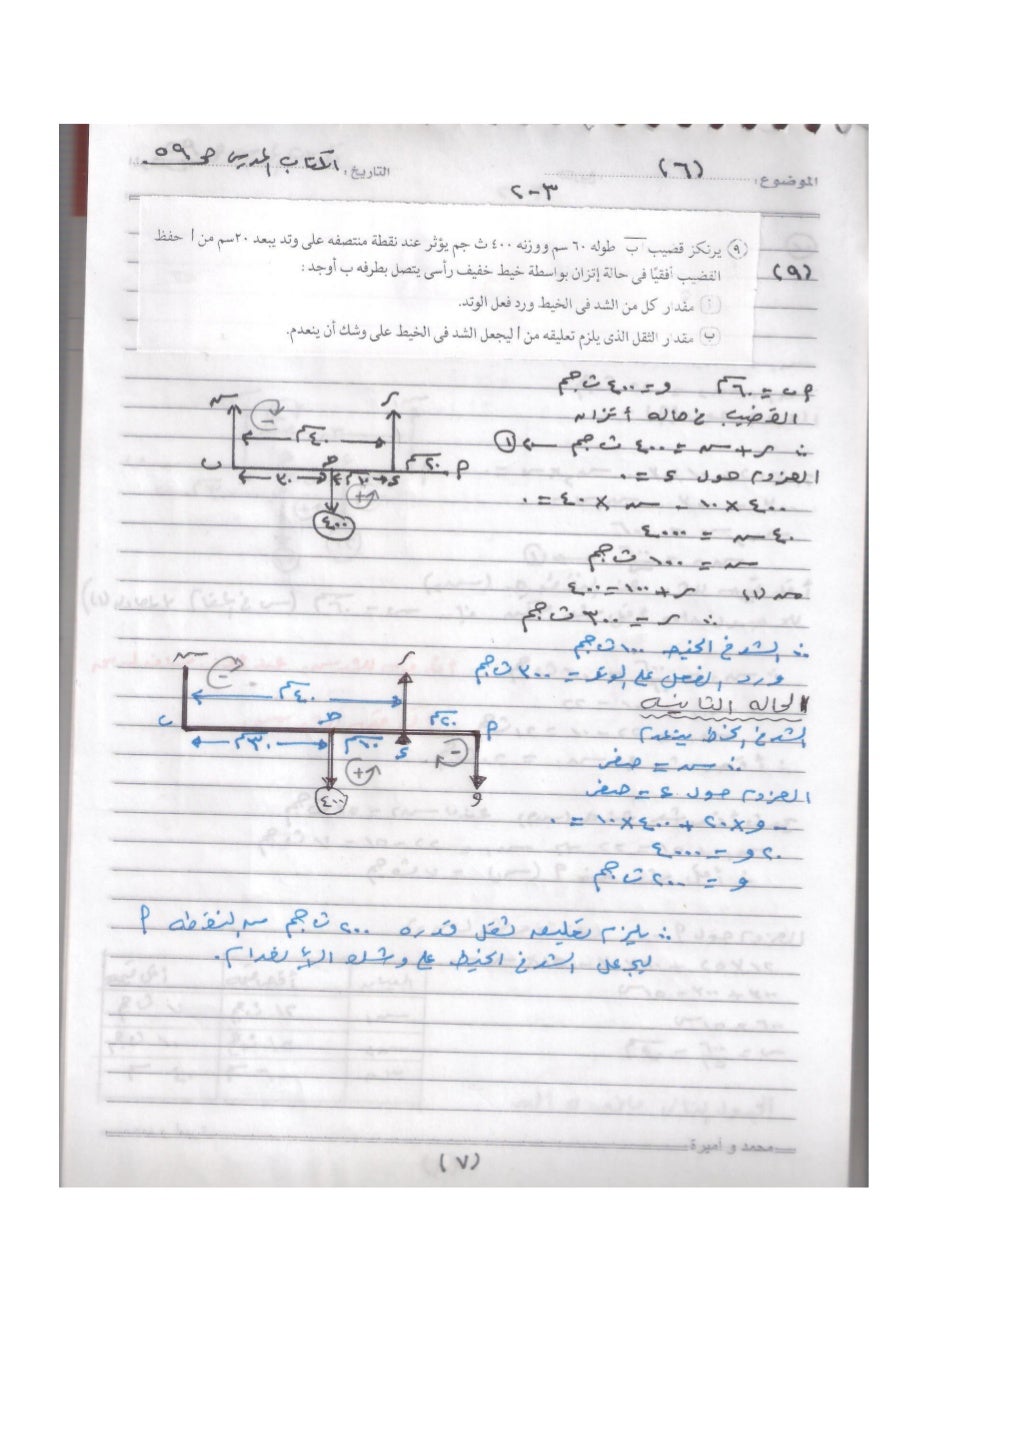 الموضوع: (٦) التاريخ: الكتاب المدرسى ص ٥٩
٣-٢
(٩)
٩ يرتكز قضيب ا ب طوله ٦٠ سم ووزنه ٤٠٠ ث جم يؤثر عند نقطة منتصفه على وتد يبعد ٢٠سم من أ حفظ
القضيب أفقيًا فى حالة إتزان بواسطة خيط خفيف رأسى يتصل بطرفه ب أوجد:
أ مقدار كل من الشد فى الخيط ورد فعل الوتد.
ب مقدار الثقل الذى يلزم تعليقه من أ ليجعل الشد فى الخيط على وشك أن ينعدم.
ا ب = ٦٠ سم و = ٤٠٠ ث جم
القضيب فى حالة أتزان
∴ ر + س = ٤٠٠ ث جم ← ١
العزوم حول ء = ٠
٤٠٠ × ١٠ - س × ٤٠ = ٠
٤٠ س = ٤٠٠٠
س = ١٠٠ ث جم
من (١) ر + ١٠٠ = ٤٠٠
∴ ر = ٣٠٠ ث جم
س ر
٤٠ سم
٢٠ سم
ب ٣٠ حـ ١٠ سم ء ا
٤٠٠
∴ الشد فى الخيط ١٠٠ ث جم
ورد الفعل على الوتد = ٣٠٠ ث جم
الحالة الثانية
الشد فى الخيط ينعدم
∴ س = صفر
العزوم حول ء = صفر
- و × ٢٠ + ٤٠٠ × ١٠ = ٠
٢٠ و = ٤٠٠٠
و = ٢٠٠ ث جم
س ر
٤٠ سم
ب حـ ٢٠ سم ا
٣٠ سم ١٠ سم ء
٤٠٠ و
∴ يلزم تعليق ثقل قدره ٢٠٠ ث جم من النقطة ا
ليجعل الشد فى الخيط على وشك الأنعدام.
محمد و أميرة
(٧)